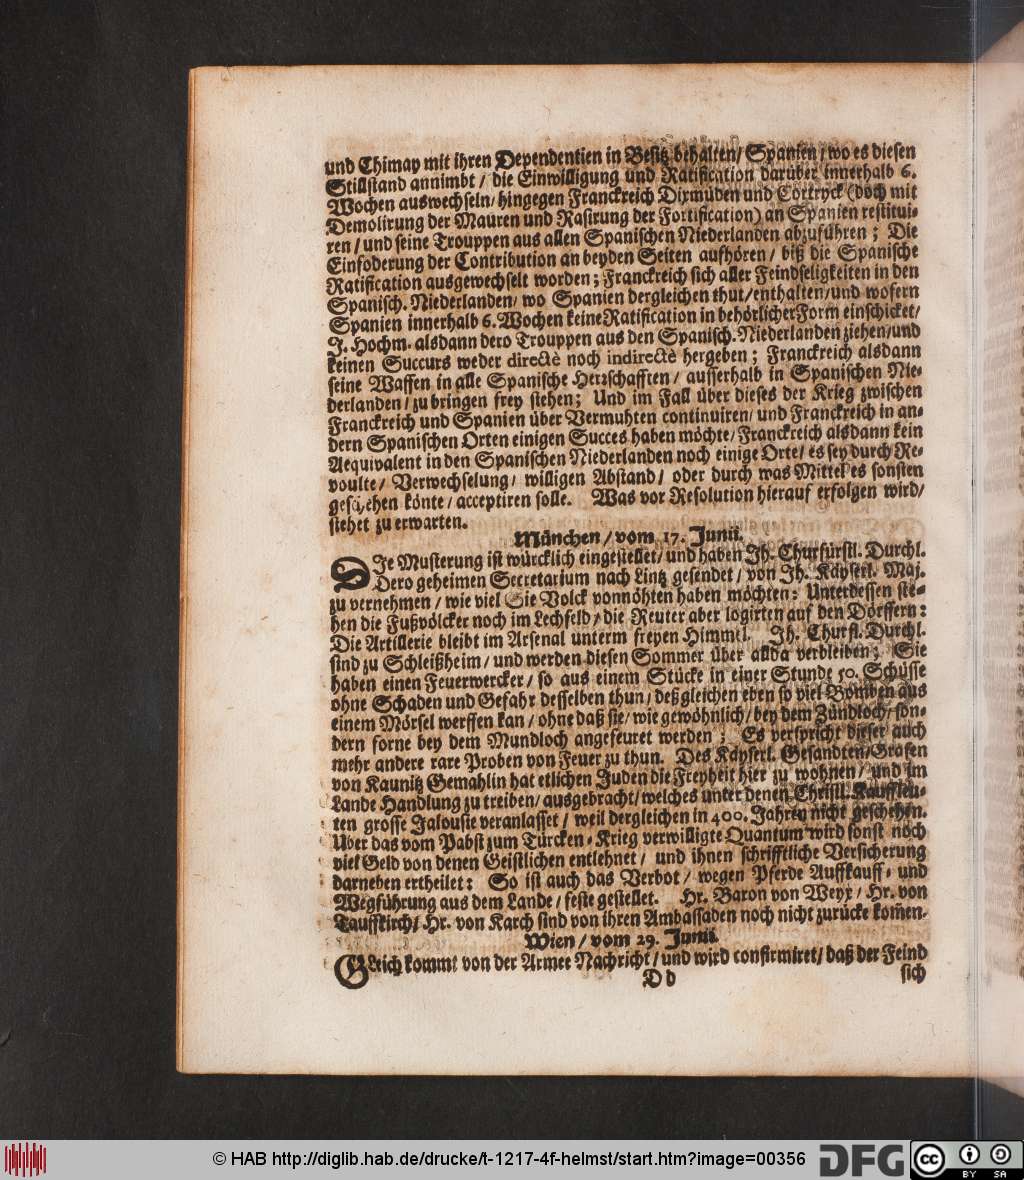 und Chimay mit ihren Dependentien in Besitz behalten/ Spanien/ wo es diesen
Stillstand annimbt / die Einwilligung und Ratification darüber innerhalb 6.
Wochen auswechseln/ hingegen Franckreich Dixmüden und Cortryck (doch mit
Demolirung der Mauren und Rasirung der Fortification) an Spanien restitui-
ren / und seine Trouppen aus allen Spanischen Niederlanden abzuführen ; Die
Einfoderung der Contribution an beyden Seiten aufhören / biß die Spanische
Ratification ausgewechselt worden ; Franckreich sich aller Feindseligkeiten in den
Spanisch. Niederlanden/ wo Spanien dergleichen thut/ enthalten/ und wofern
Spanien innerhalb 6. Wochen keine Ratification in behörlicher Form einschicket/
J. Hochm. alsdann dero Trouppen aus den Spanisch. Niederlanden ziehen/ und
keinen Succurs weder directè noch indirectè hergeben ; Franckreich alsdann
seine Waffen in alle Spanische Herrschafften / ausserhalb in Spanischen Nie-
derlanden / zu bringen frey stehen ; Und im Fall über dieses der Krieg zwischen
Franckreich und Spanien über Vermuhten continuiren/ und Franckreich in an-
dern Spanischen Orten einigen Succes haben möchte/ Franckreich alsdann kein
Aequivalent in den Spanischen Niederlanden noch einige Orte/ es sey durch Re-
voulte / Verwechselung / willigen Abstand / oder durch was Mittel es sonsten
geschehen könte / acceptiren solle. Was vor Resolution hierauf erfolgen wird/
stehet zu erwarten.
München / vom 17. Junii.
DJe Musterung ist würcklich eingestellet/ und haben Jh. Churfürstl. Durchl.
Dero geheimen Secretarium nach Lintz gesendet / von Jh. Käyserl. Maj.
zu vernehmen / wie viel Sie Volck vonnöhten haben möchten: Unterdessen ste-
hen die Fußvölcker noch im Lechfeld / die Reuter aber logirten auf den Dörffern:
Die Artillerie bleibt im Arsenal unterm freyen Himmel. Jh. Churfl. Durchl.
sind zu Schleißheim / und werden diesen Sommer über allda verbleiben; Sie
haben einen Feuerwercker / so aus einem Stücke in einer Stunde 50. Schüsse
ohne Schaden und Gefahr desselben thun / deßgleichen eben so viel Bomben aus
einem Mörsel werffen kan / ohne daß sie/ wie gewöhnlich/ bey dem Zündloch/ son-
dern forne bey dem Mundloch angefeuret werden ; Es verspricht dieser auch
mehr andere rare Proben von Feuer zu thun. Des Käyserl. Gesandten/ Grafen
von Kaunitz Gemahlin hat etlichen Juden die Freyheit hier zu wohnen / und im
Lande Handlung zu treiben/ ausgebracht/ welches unter denen Christl. Kauffleu-
ten grosse Jalousie veranlasset / weil dergleichen in 400. Jahren nicht geschehen.
Über das vom Pabst zum Türcken-Krieg verwilligte Quantum wird sonst noch
viel Geld von denen Geistlichen entlehnet / und ihnen schrifftliche Versicherung
darneben ertheilet: So ist auch das Verbot / wegen Pferde Auffkauff- und
Wegführung aus dem Lande / feste gestellet. Hr. Baron von Weyx / Hr. von
Tauffkirch/ Hr. von Karch sind von ihren Ambassaden noch nicht zurücke kom̃en.
Wien / vom 29. Junii.
GLeich kommt von der Armee Nachricht/ und wird confirmiret/ daß der Feind
D d sich
© HAB http://diglib.hab.de/drucke/t-1217-4f-helmst/start.htm?image=00356
DFG
cc BY SA